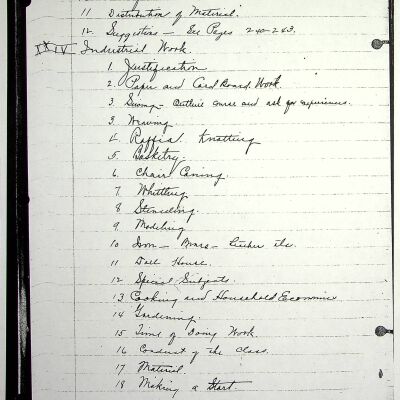 11. Distribution of Material.
12. Suggestions - See Pages 240-263.
XXIV Industrial Work.
1. Justification
2. Paper and Card Board Work
3. Sewing - Outline course and ask for experiences.
3. Weaving
4. Raffia. Knotting
5. Basketry.
6. Chair Caning.
7. Whittling
8. Stenciling.
9. Modeling
10 Iron - Brass - Leather etc.
11 Doll House.
12 Special Subjects.
13 Cooking and Household Economics
14 Gardening.
15 Time of Doing Work.
16 Conduct of the Class.
17 Material.
18 Making a Start.